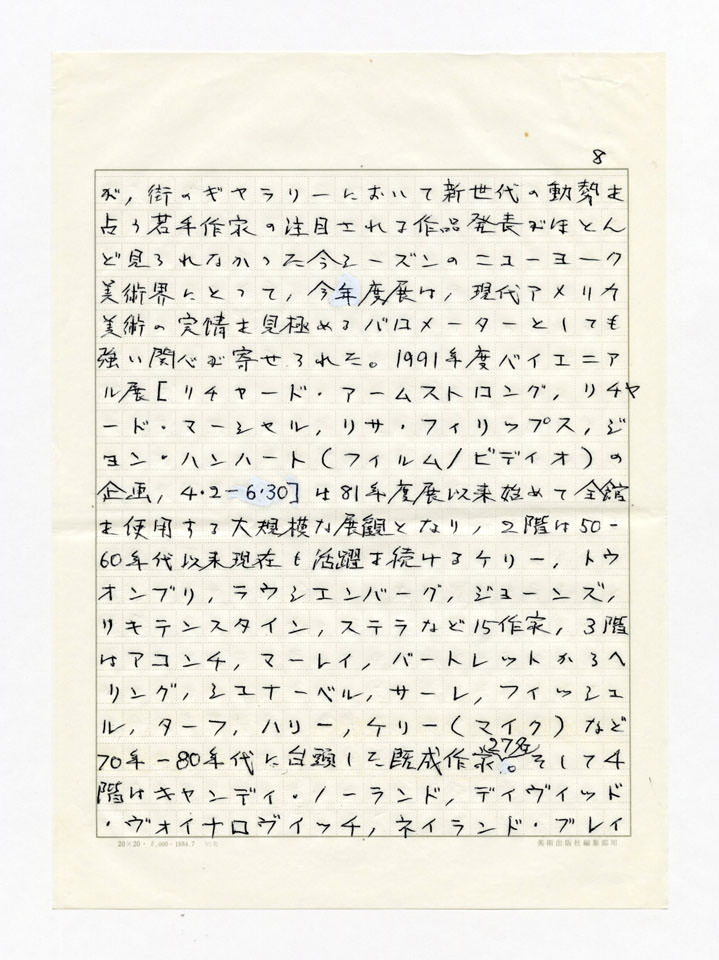 8
が，街のギャラリーにおいて新世代の動勢を
占う若手作家の注目される作品発表がほとん
ど見られなかった今シーズンのニューヨーク
美術界にとって，今年度展は，現代アメリカ
美術の実情を見極めるバロメーターとしても
強い関心が寄せられた。1991年度バイエニア
ル展［リチャード・アームストロング，リチャ
ード・マーシャル，リサ・フィリップス，ジ
ョン・ハンハート（フィルム/ビデイオ）の
企画，4・2－6・30］は81年度展以来始めて全館
を使用する大規模な展観となり，2階は50－
60年代以来現在も活躍を続けるケリー，トウ
オンブリ，ラウシェンバーグ，ジョーンズ，
リキテンスタイン，ステラなど15作家，3階
はアコンチ，マーレイ，バートレットからヘ
リング，シュナーベル，サーレ，フィッシュ
ル，ターフ，ハリー，ケリー（マイク）など
70年－80年代に台頭した既成作家27名。そして4
階はキャンディ・ノーランド，ディヴィッド
・ヴォイナロヴィッチ，ネイランド・ブレイ
20×20・5,000・1984.7
美術出版社編集部用